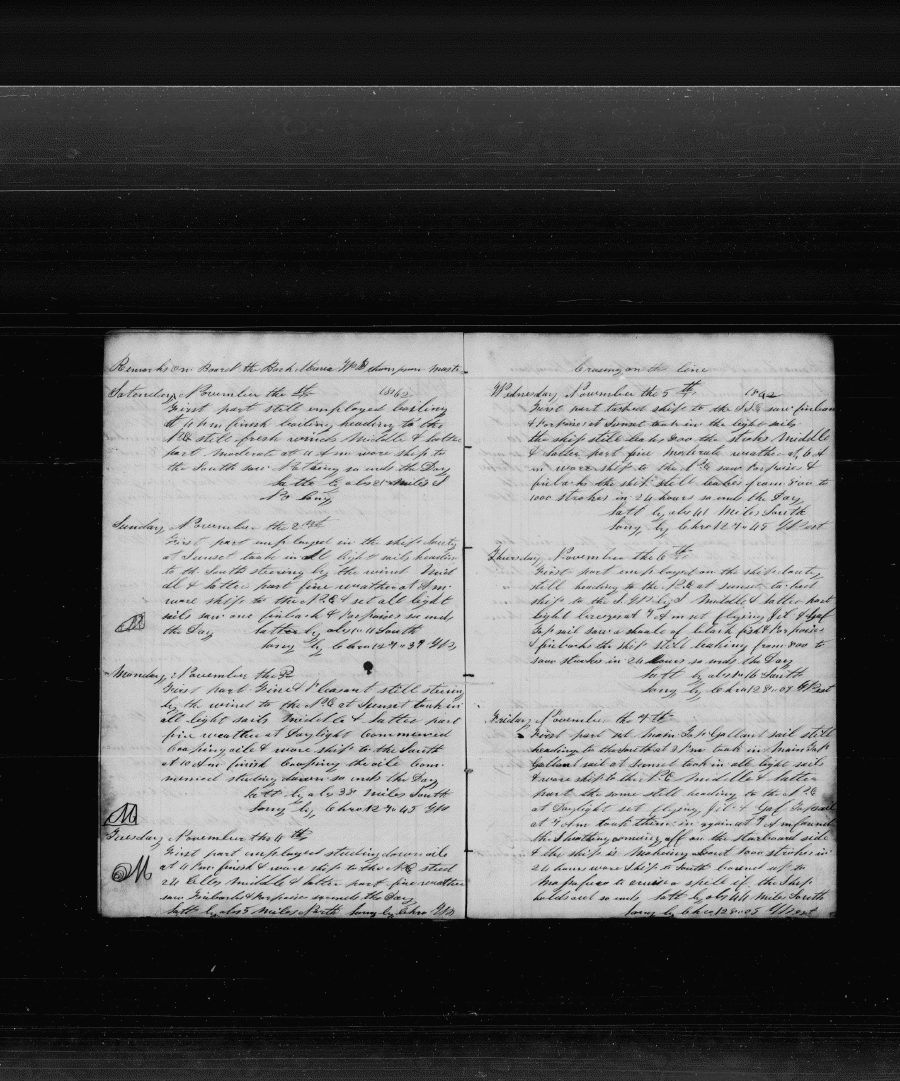 Remarks on Board the Bark Wm Thompson master
Saturday November the 1st 1862
First part still employed boiling
at 11 Pm finish boiling heading to the
NE still fresh winds Middle & latter
part moderate at 11 Am ware ship to
the South saw Nothing so ends the Day
Latt by abs 21 miles S
No Long
Sunday November the 2nd
First part employed in the ships Duty
at Sunset took in all light sails heading
to the South steering by the wind Mid
dl & latter part fine weather at Am
ware ship to the NE & set all light
sails saw one finback & Porpoises so ends
the Day Latter by abs 11 South
Long by Chro 127 39 W
Monday November the 3
First part Fine & Pleasant still steering
by the wind to the NE at Sunset took in
all light sails Middle & latter part
fine weather at Daylight Commenced
Coopering oile & ware ship to the South
at 10 Am finish Coopering the oile Com
menced stowing down so ends the Day
Latt by abs 39 miles South
Long by Chro 127 45 W
Tuesday November the 4th
First part employed stowing down oile
at 4 Pm finish & ware ship to the NE stowed
24 Blls Middle & latter part fine weather
saw Finbacks & Porpoises so ends the Day
Latt by abs 5 miles North Long by Chro W
Crusing on the Line
Wednesday November the 5th 1862
First part tacked ship to the saw finbacks
& Porpoises at Sunset took in the light sails
the ship still leaks 800 the strokes Middle
& latter part fine moderate weather at 6 A
m ware ship to the NE saw Porpoises &
finbacks the ship still leakes from 800 to
1000 strokes in 24 hours so ends the Day
Latt by abs 41 Miles South
Long by Chro 127 45 West
Thursday November the 6th
First part employed on the ships Duty
still heading to the NE at sunset tacked
ship to the S Middle & latter part
light breezes at 7 Am set flying Jib & Gaf
Topsail saw a shoale of black fish & Porpoises
& finbacks the ship still leaking from 800 to
1000 strokes in 24 hours so ends the Day
Latt by abs 16 South
Long by Chro 128 07 West
Friday November the 7th
First part set Main Top Gallant sail still
heading to the South at 2 Pm took in Main Top
Gallant sail at sunset took in all light sails
& ware ship to the NE Middle & latter
part the same still heading to the NE
at Daylight set flying Jib & Gaf Topsail
at 7 Am took them in again at 9 Am found
the Sheathing coming off on the starboard side
& the ship is Makeing about 1000 strokes in
24 hours ware Ship to South bound up to
to cruise a spell if the Ship
holds out so ends Latt by abs 44 Miles South
Long by Chro 128 05 West